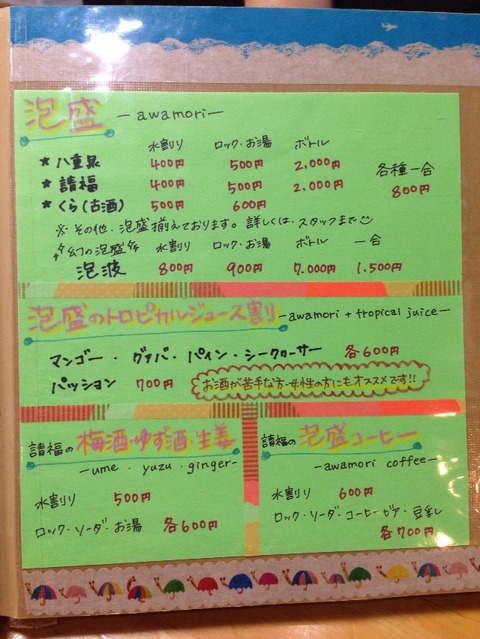 泡盛 -awamori-
水割り ロック・お湯 ボトル
★八重泉 400円 500円 2,000円 各種一合
★請福 400円 500円 2,000円 800円
★くら(古酒) 500円 600円
※その他、泡盛揃えております。詳しくは、スタッフまで
幻の泡盛 水割り ロック・お湯 ボトル 一合
泡波 800円 900円 7,000円 1,500円
泡盛のトロピカルジュース割り -awamori + tropical juice-
マンゴー・グァバ・パイン・シークワーサー 各600円
パッション 700円 お酒が苦手な方・女性の方にもオススメです!!
請福の梅酒・ゆず酒・生姜
-ume・yuzu・ginger-
水割り 500円
ロック・ソーダ・お湯 各600円
請福の泡盛コーヒー
-awamori coffee-
水割り 600円
ロック・ソーダ・コーヒービア・豆乳
各700円